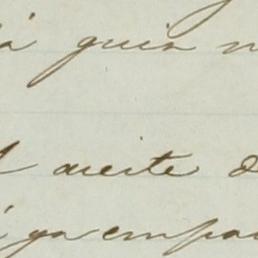 á quien n
l aceite d
ya empa